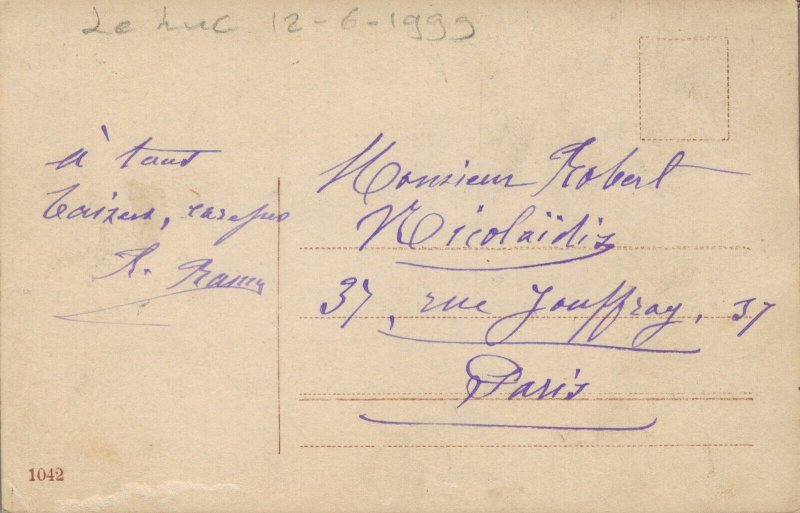 Le Luc 12-6-1999
à tant
baizers, caresses
R.
Monsieur Robert
Nicolaïdis
37, rue Jouffroy, 37
Paris
1042